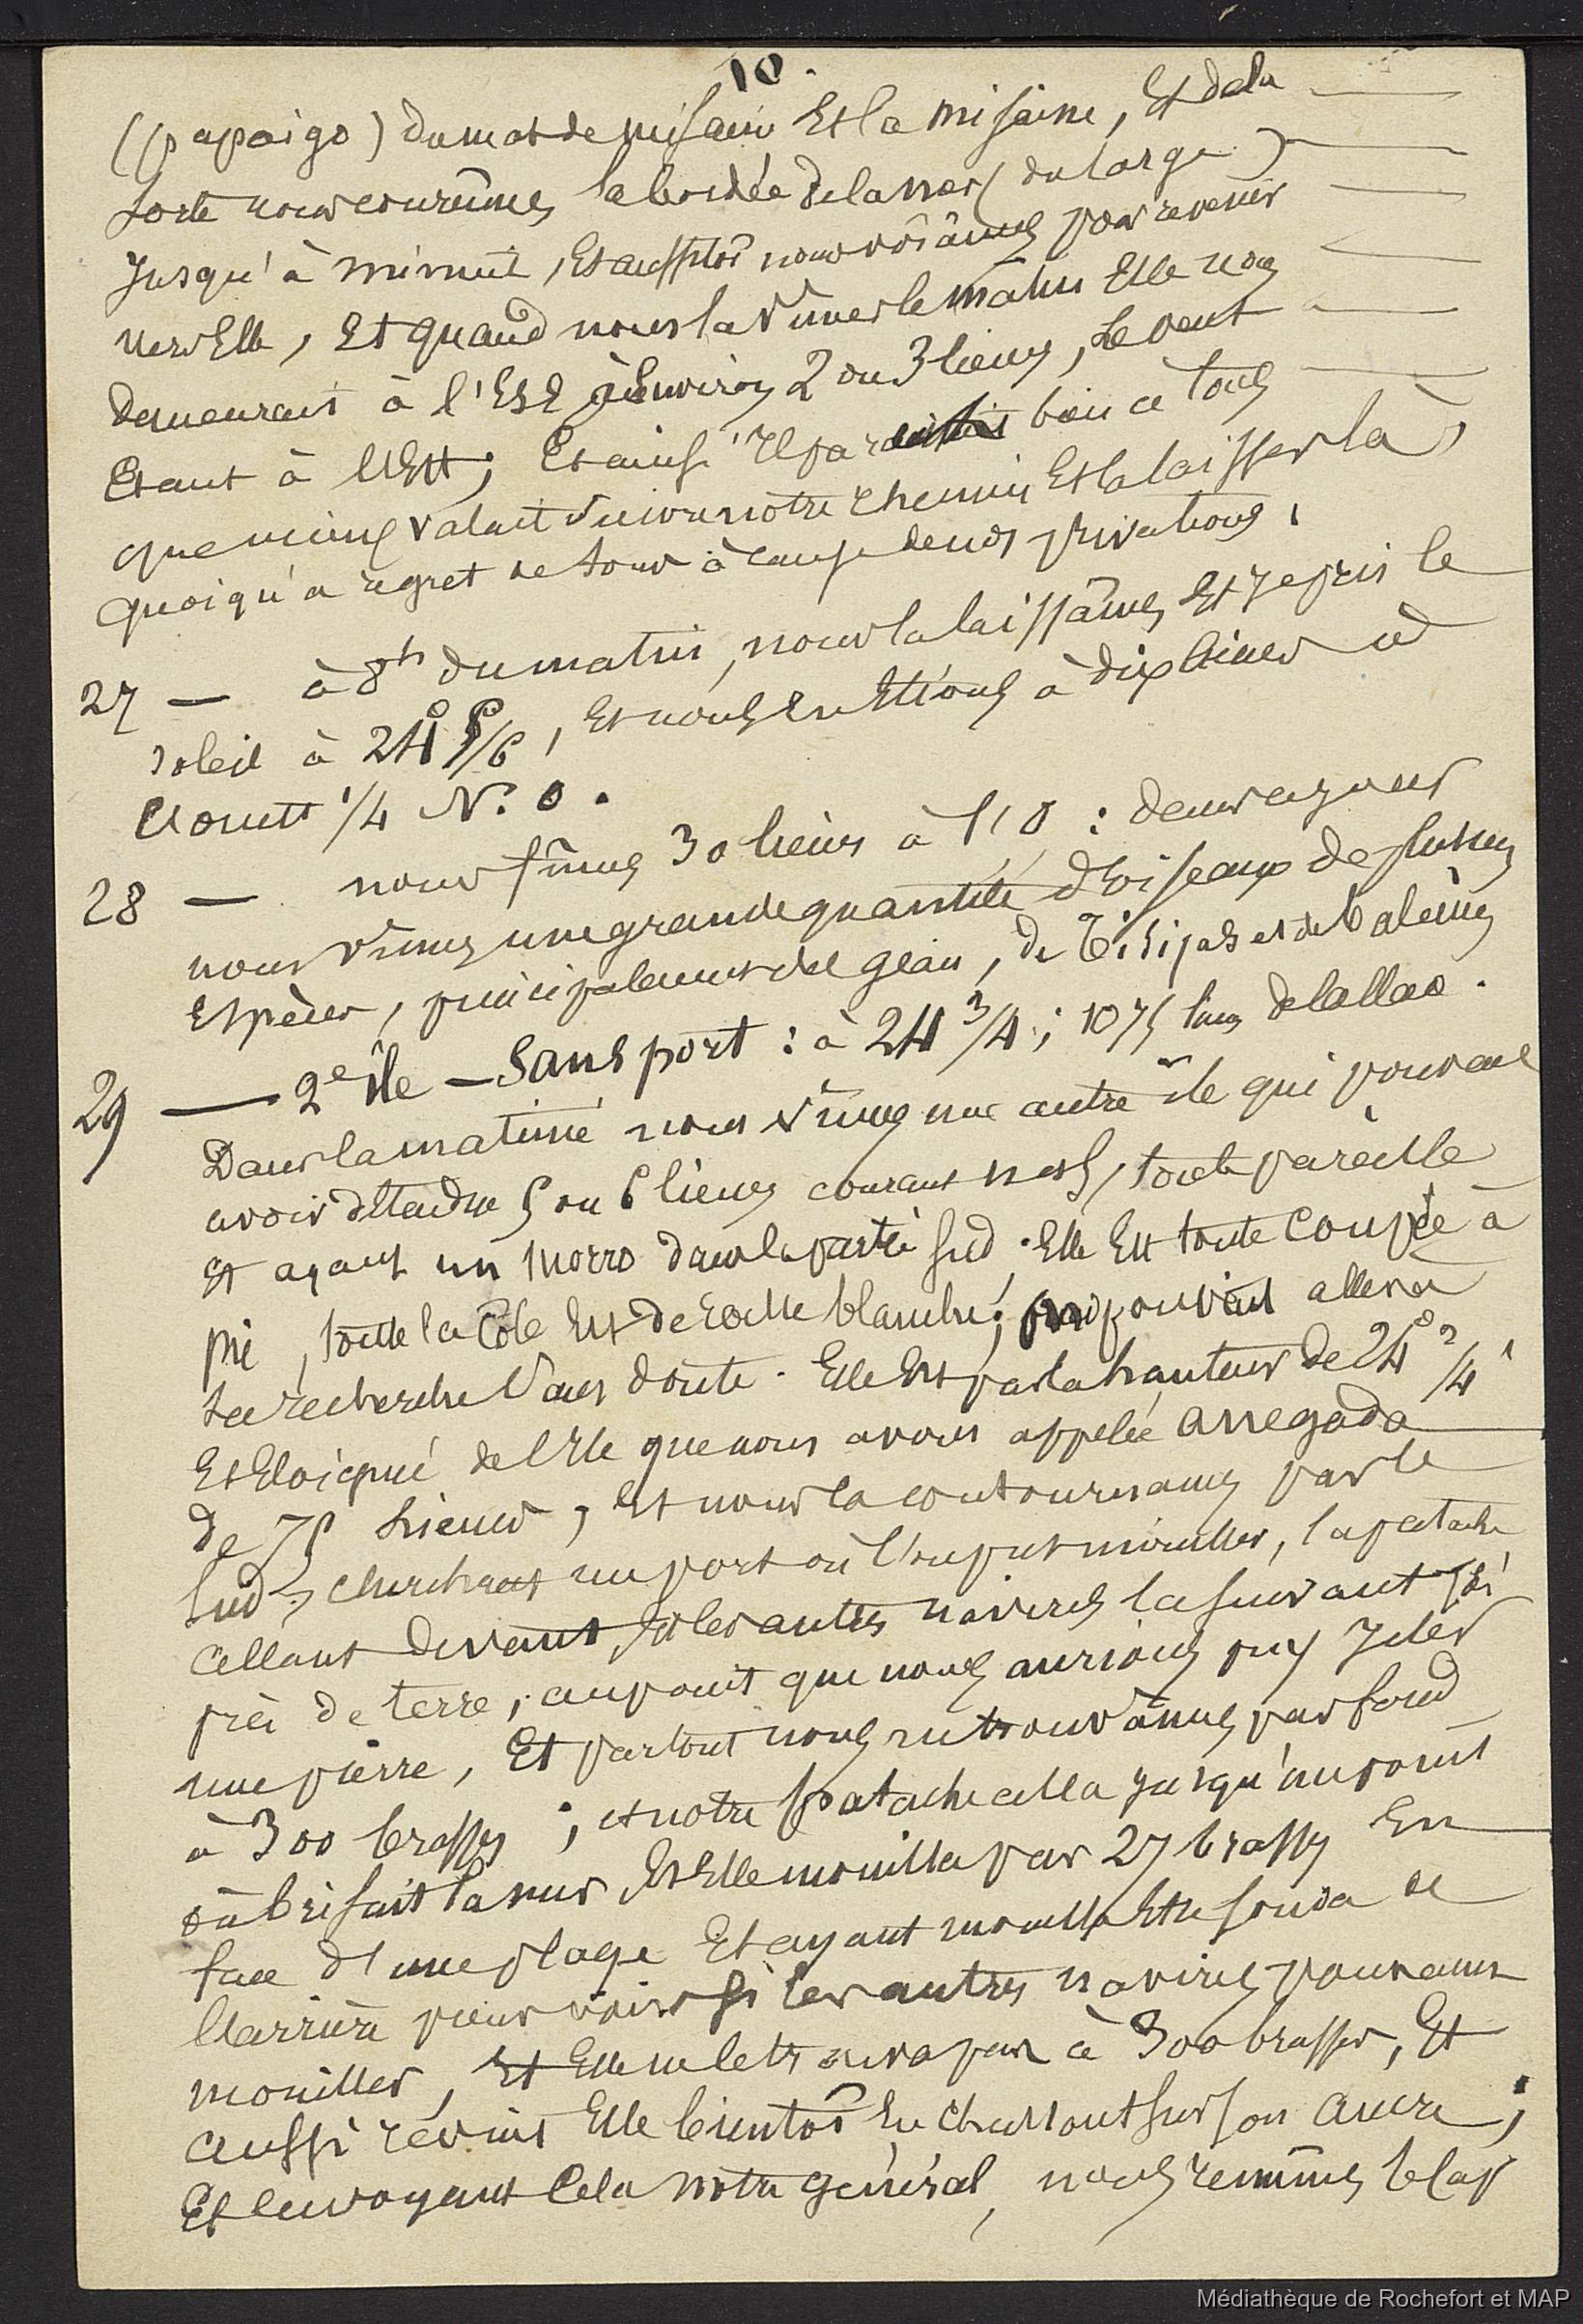 10.
(papaigo) du mas de misaine Et la misaine, Et de la
sorte nous courûmes la bordée de la mer (du large)
Jusqu'à minuit, Et aussitôt nous virâmes pour revenir
vers Elle, Et quand nous la Vîmes le matin Elle nous
demeurait à l'Est à Environ 2 ou 3 lieues, Le vent
Etant à l'Est; Et ainsi Il parut bon à tous
que mieux valait suivre notre chemin Et la laisser là,
quoiqu'à regret de tous à cause de nos privations,
27 — à 8h du matin, nous la laissâmes Et Je pris le
soleil à 24° 5/6, Et nous En Etions à dix lieues à
l'Ouest 1/4 N. O.
28 — nous fîmes 30 lieues à l'O : devers
nous Vîmes une grande quantité d'oiseaux de plusieurs
Espèces, principalement de, de et de baleines
29 — 2e île — Sans port : à 24 3/4; 1075 lieues de Callao.
Dans la matinée nous Vîmes une autre île qui pouvait
avoir d'étendue 5 ou 6 lieues courant, toute pareille
Et ayant un Morro dans la partie Sud. Elle Est toute coupée à
pic, toute la côte Est de roche blanche; pouvait aller à
sa recherche Sans doute. Elle Est par la hauteur de 24° 3/4
Et Eloignée de l'Ile que nous avons appelée Anegada
de 75 Lieues, Et nous la contournâmes par le
Sud, cherchant un port où l'on put mouiller, la patache
allant devant, Et les autres navires la suivant si
près de terre, au point que nous aurions pu y Jeter
une pierre, Et partout nous nous trouvâmes par fond
à 300 brasses; et notre patache alla jusqu'au point
où brisait la mer Et Elle mouilla par 27 brasses En
face d'une plage Et ayant mouillé Elle sonda de
l'arrière pour voir si les autres navires pouvaient
mouiller, Et Elle ne le trouva pas à 300 brasses, Et
aussi revint Elle bientôt En chassant sur son ancre;
Et En voyant Cela notre général, nous remîmes le cap
Médiathèque de Rochefort et MAP